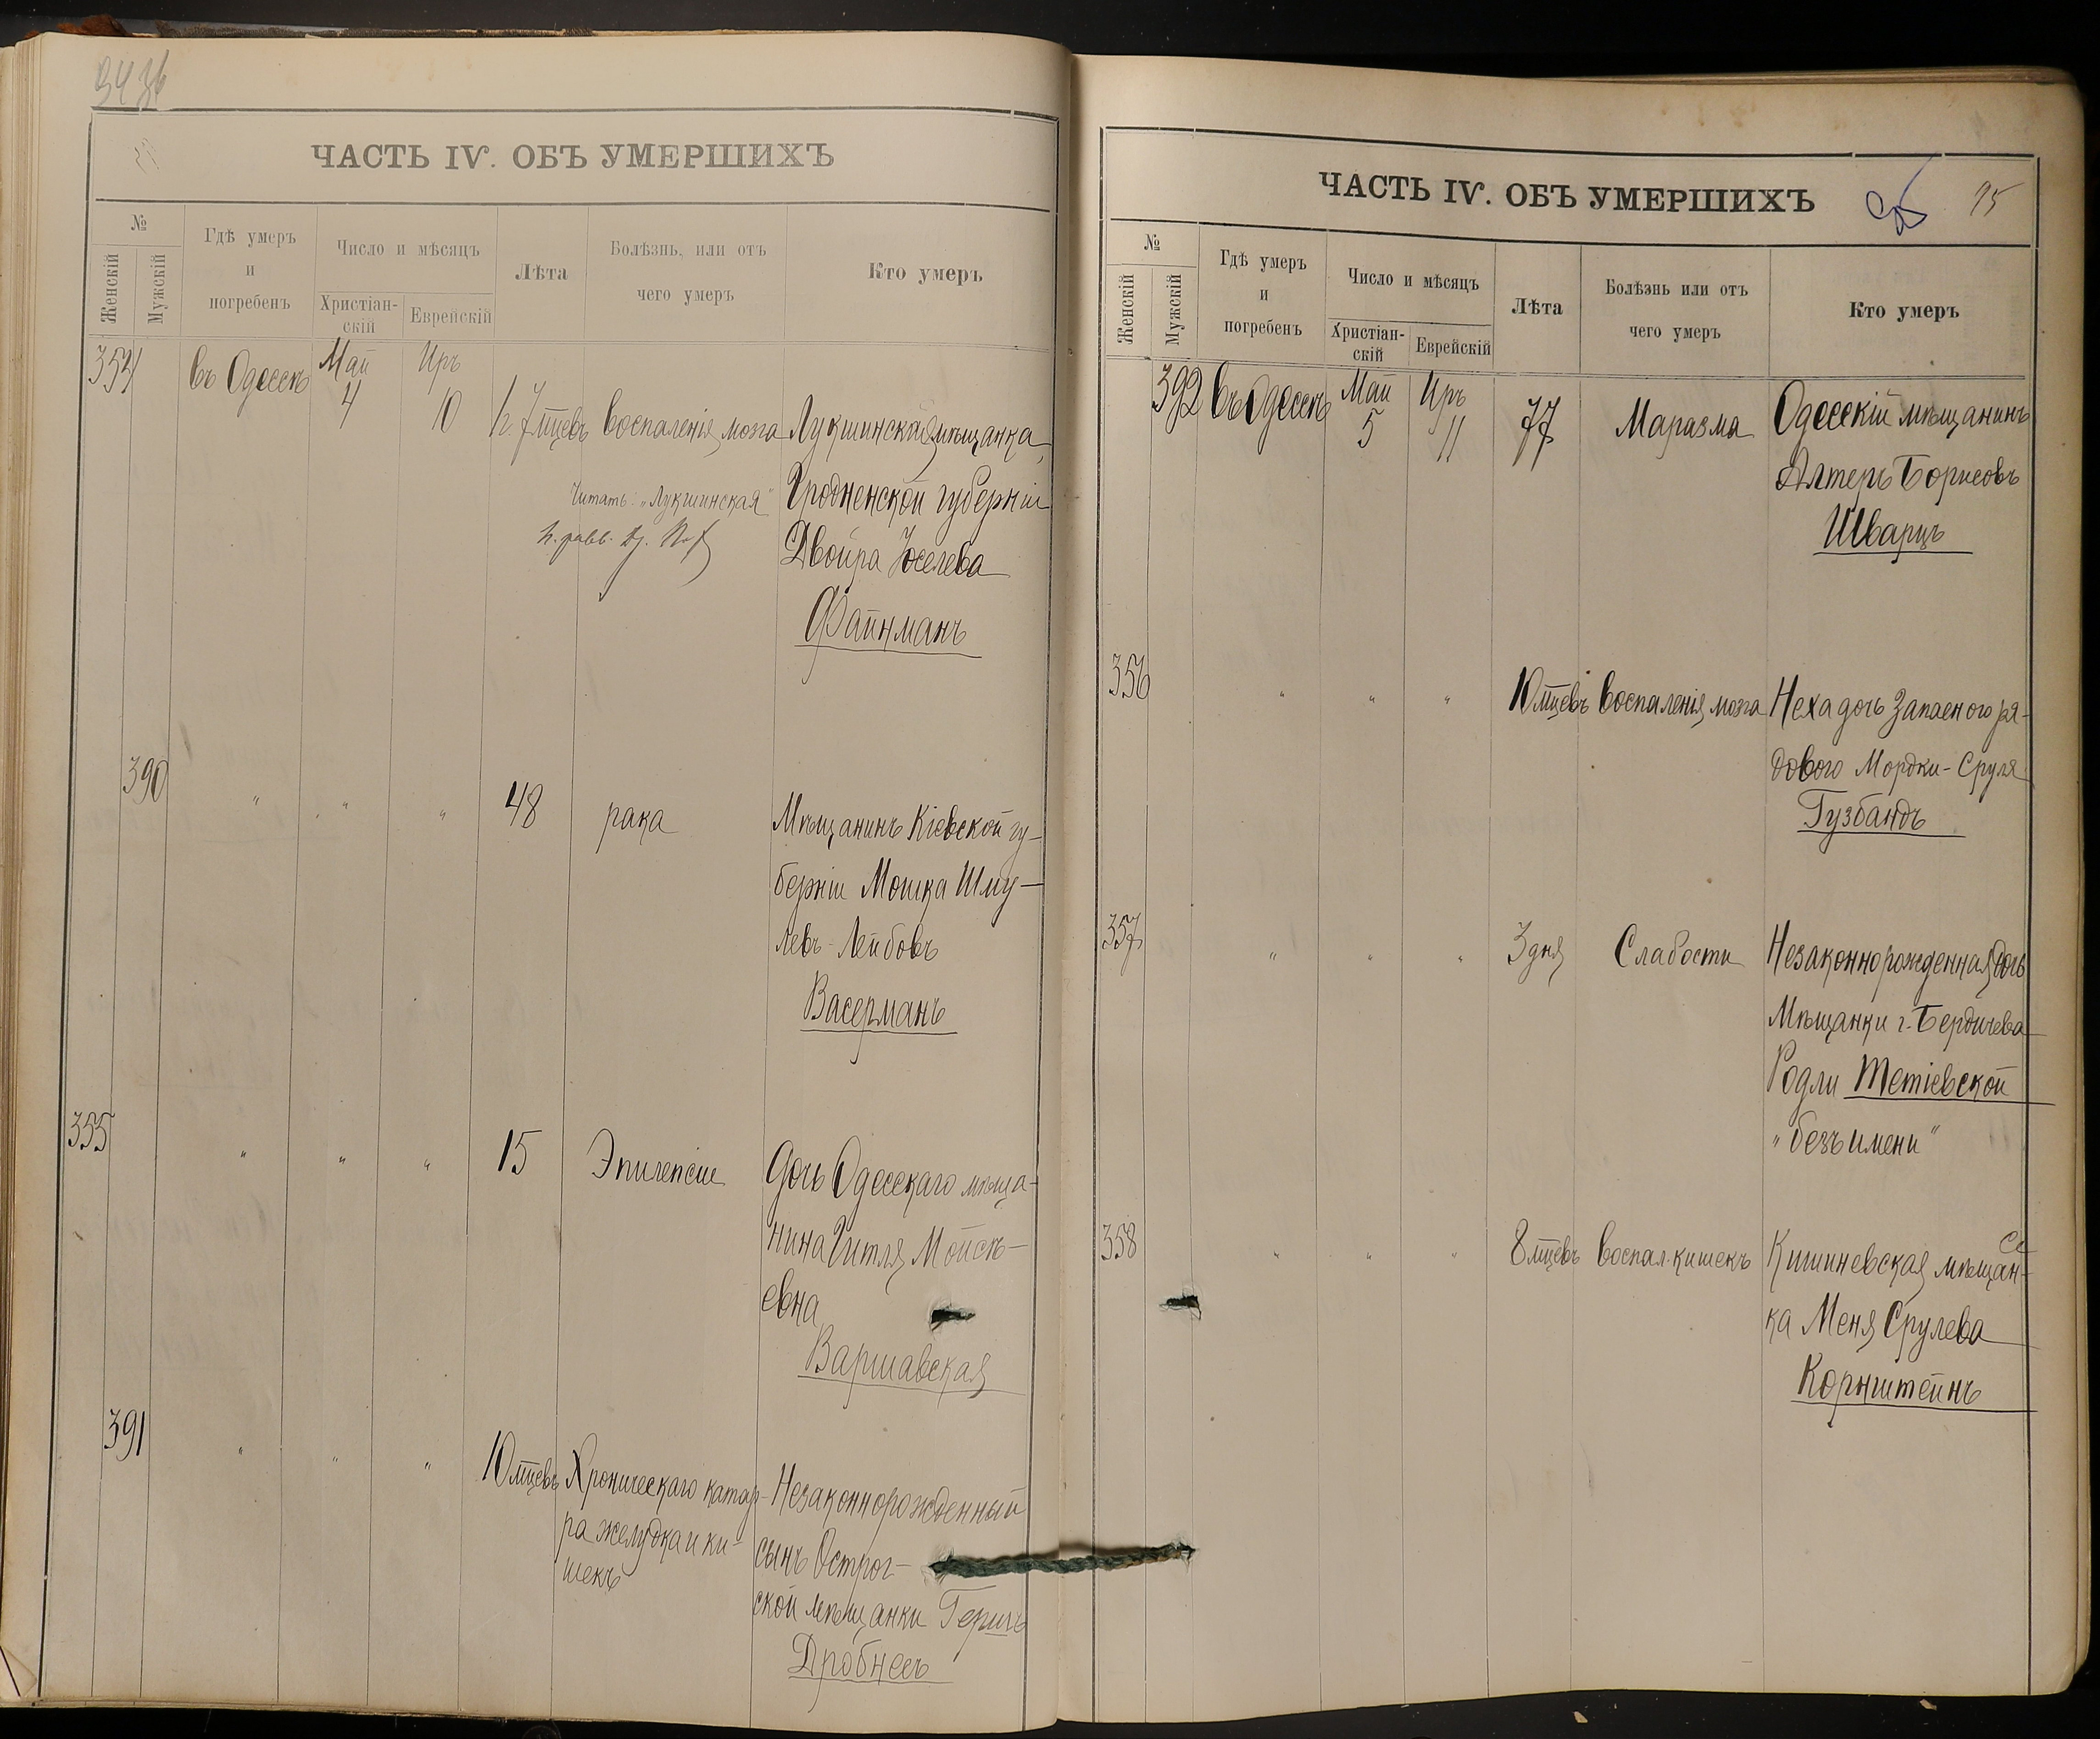 ЧАСТЬ IV. ОБЪ УМЕРШИХЪ
№
Женскій
Мужскій
Гдѣ умеръ
и
погребенъ
Число и мѣсяцъ
Христіан-
скій
Еврейскій
Лѣта
Болѣзнь, или отъ
чего умеръ
Кто умеръ
354 въ Одессѣ Май Иръ
4 10 7 мцевъ воспаленія мозга Лукшинская мѣщанка,
Читать: „Лукшинская" Гродненской губерніи
Двойра Іоселева
Файнманъ
390 " " " 48 рака Мѣщанинъ Кіевской гу-
берніи Мошка Шму-
левъ-Лейбовъ
Васерманъ
355 " " " 15 Эпилепсіи Дочь Одесскаго мѣща-
нина Гитля Мойсѣ-
евна
Варшавская
391 " " " 10 мцевъ Хроническаго катар- Незаконнорожденный
ра желудка и ки- сынъ Острог-
шекъ ской мѣщанки Гершъ
Дробнесъ
ЧАСТЬ IV. ОБЪ УМЕРШИХЪ 95
№
Женскій
Мужскій
Гдѣ умеръ
и
погребенъ
Число и мѣсяцъ
Христіан-
скій
Еврейскій
Лѣта
Болѣзнь или отъ
чего умеръ
Кто умеръ
392 въ Одессѣ Май Иръ 77 Маразма Одесскій мѣщанинъ
5 11
Алтеръ Борисовъ
Шварцъ
356 " " " 10 мцевъ воспаленія мозга Неха дочь Запасного ря-
дового Мордки-Сруля
Гузбандъ
357 " " " 3 дня Слабости Незаконнорожденная дочь
Мѣщанки г. Бердичева
Родли Тетіевской
„безъ имени"
358 " " " 8 мцевъ воспал. кишекъ Кишиневская мѣщан-
ка Меня Срулева
Корнштейнъ